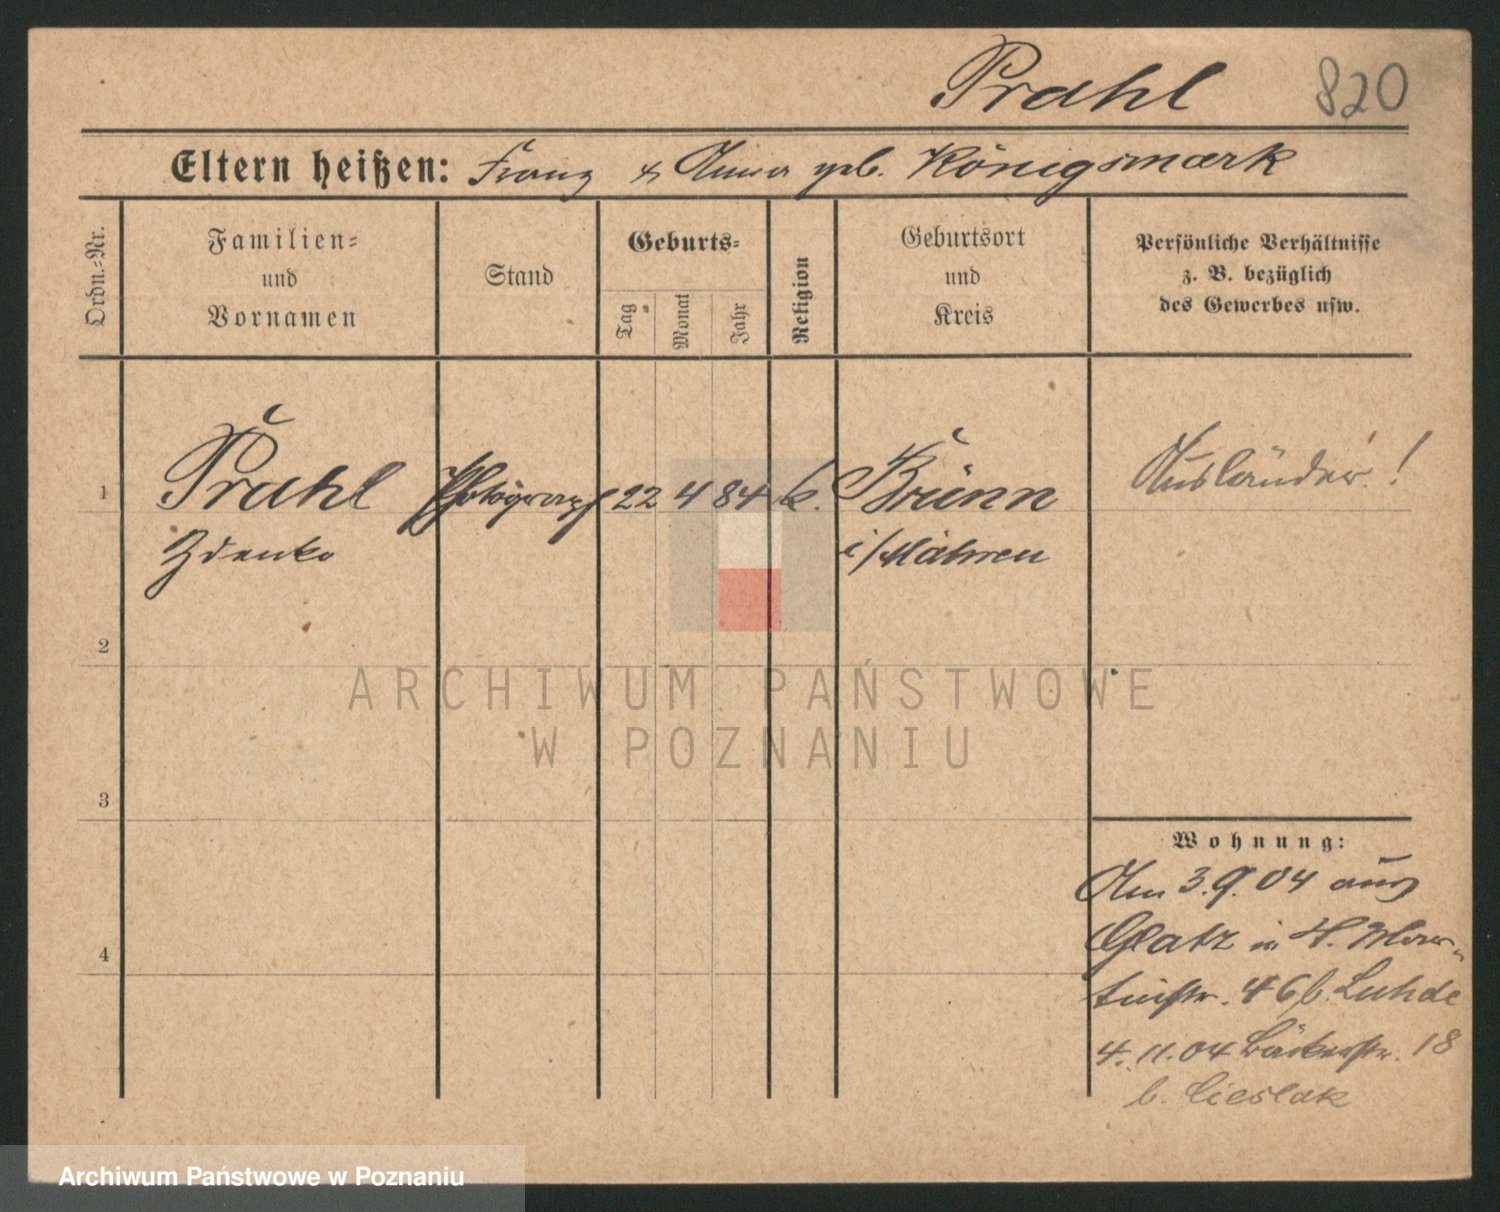 Prahl 820
Eltern heißen: Franz & Anna geb. Königsmark
Ordn.-Nr.
Familien-
und
Vornamen
Stand
Geburts-
Tag
Monat
Jahr
Religion
Geburtsort
und
Kreis
Persönliche Verhältnisse
z. B. bezüglich
des Gewerbes usw.
1 Prahl Photograph 22 4 84 k. Brünn Ausländer!
Zdenko i/Mähren
2
3
4
Wohnung:
Am 3.9.04 aus
Glatz in H. Mar-
tinstr. 46 b. Luhde
4.11.04 Bäckerstr. 18
b. Cieslak
ARCHIWUM PAŃSTWOWE
W POZNANIU
Archiwum Państwowe w Poznaniu